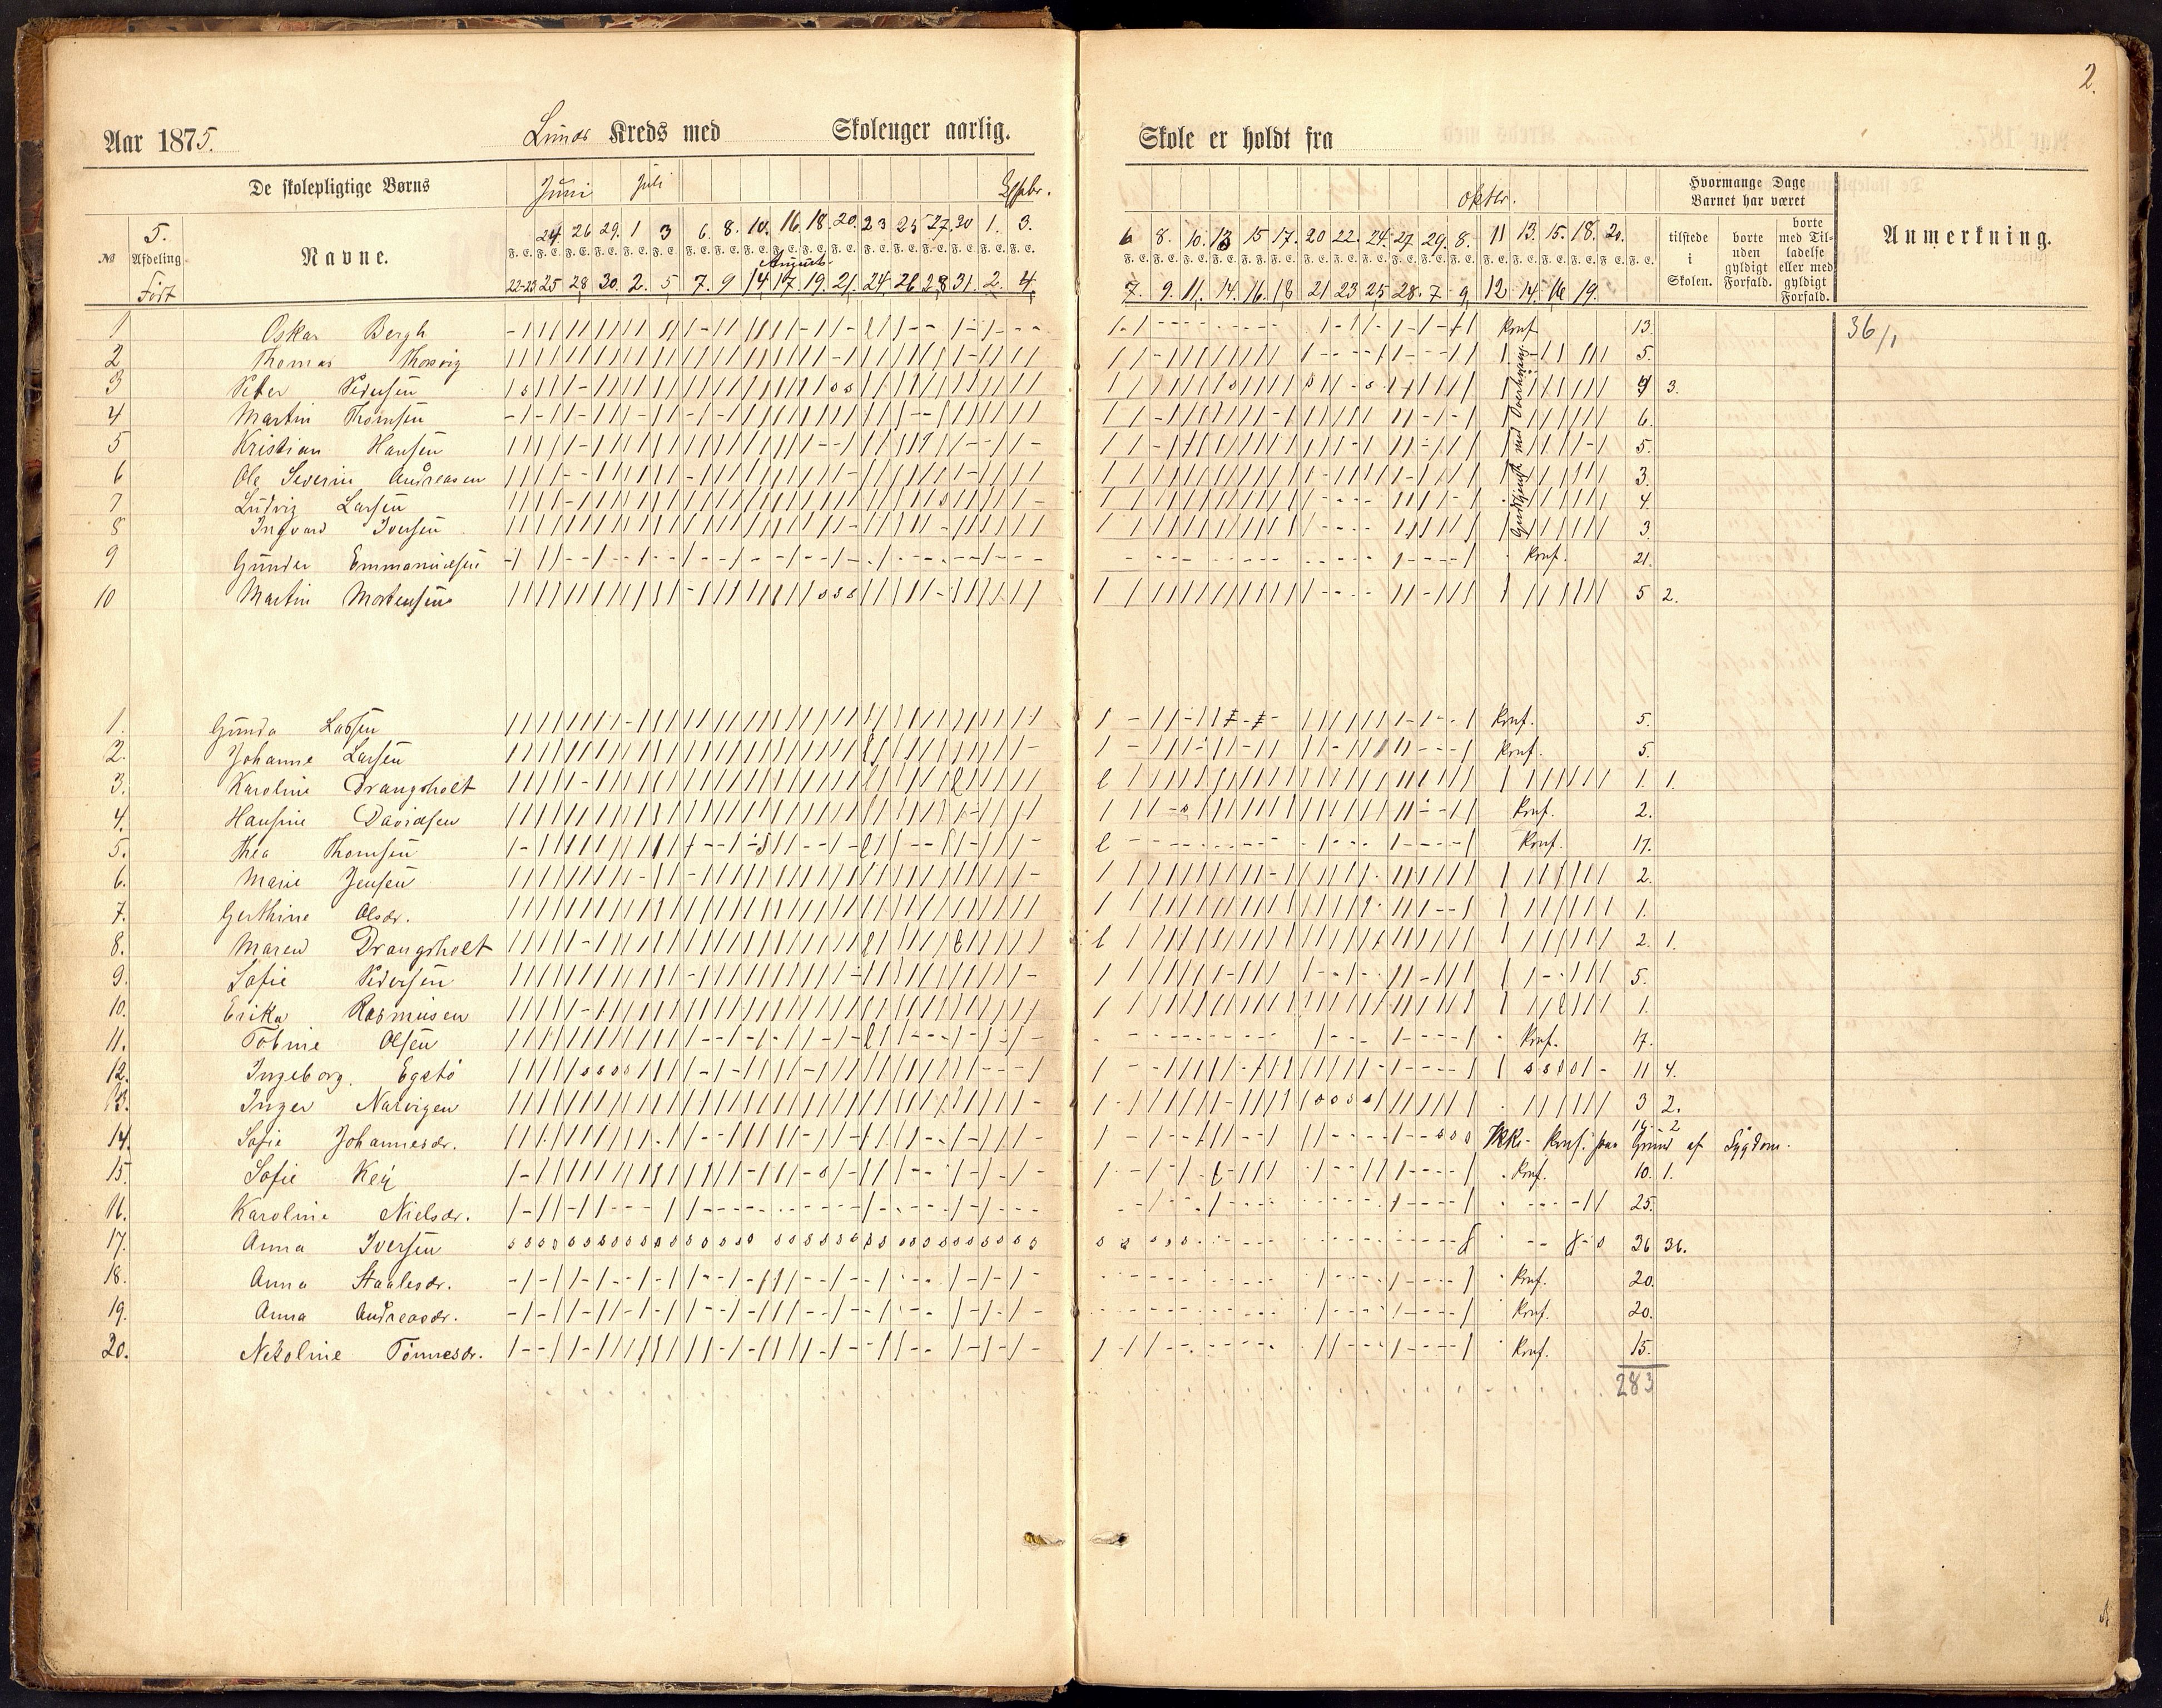 2.
Aar 1875. Lunds Kreds med Skoleuger aarlig. Skole er holdt fra
De skolepligtige Børns Juni Juli Septbr. oktbr. Hvormange Dage Barnet har været
24. 26 29. 1 3 6. 8. 10. 16. 18. 20. 23 25 27. 30 1. 3. 6 8. 10. 13 15 17. 20 22. 24. 27. 29. 8. 11 13. 15. 18. 20.
№ 5. Afdeling Født Navne. tilstede i Skolen. borte uden gyldigt Forfald. borte med Tilladelse eller med gyldigt Forfald. Anmerkning.
August
22-23 25 28 30. 2. 5 7. 9 14 17. 19. 21. 24. 26 28 31. 2. 4. 7. 9. 11. 14. 16. 18 21 23 25 28. 7 9 12 14. 16 19.
1 Oskar Bergh Konf. 13. 36/1
2 Thomas Thosvig 5.
3 Peter Pedersen 4 3.
4 Martin Thomsen 6.
5 Kristian Hansen 5.
6 Ole Severin Andreasen 3.
7 Ludvig Larsen 4.
8 Ingvard Iversen 3.
9 Gunder Emmanuelsen Konf. 21.
10 Martin Mortensen 5 2.
1. Gunda Larsen Konf. 5.
2. Johanne Larsen Konf. 5.
3. Karoline Drangsholt 1. 1.
4. Hansine Davidsen Konf. 2.
5. Thea Thomsen Konf. 17.
6. Marie Jensen 2.
7. Gerthine Olsdr. 1.
8. Maren Drangsholt 2. 1.
9. Sofie Pedersen 5.
10. Erika Rasmusen 1.
11. Tobine Olsen Konf. 17.
12. Ingeborg Egstö 11 4.
13. Inger Narvigen 3 2.
14. Sofie Johannesdr. 14 - 2 Ikke Konf. paa Grund af Sygdom.
15. Sofie Keÿ Konf. 10. 1.
16. Karoline Nielsdr. 25.
17. Anna Iversen 36 36.
18. Anna Staalesdr. Konf. 20.
19. Anna Andreasdr. Konf. 20.
20. Nikoline Tönnesdr. Konf. 15.
283